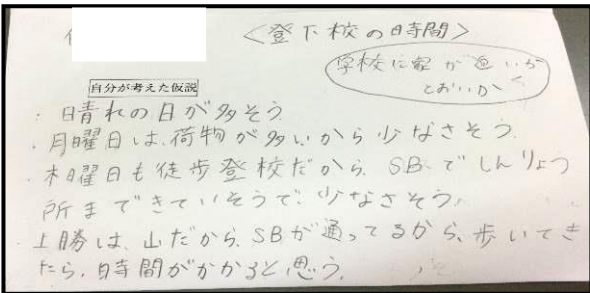 <登下校の時間>
学校に家が近いか
とおいか
自分が考えた仮説
・晴れの日が多そう
・月曜日は、荷物が多いから少なさそう.
・木曜日も徒歩登校だから、SBでしんりょう
所まできていそうで、少なさそう。
・上勝は、山だから、SBが通ってるから、歩いてき
たら、時間がかかると思う。